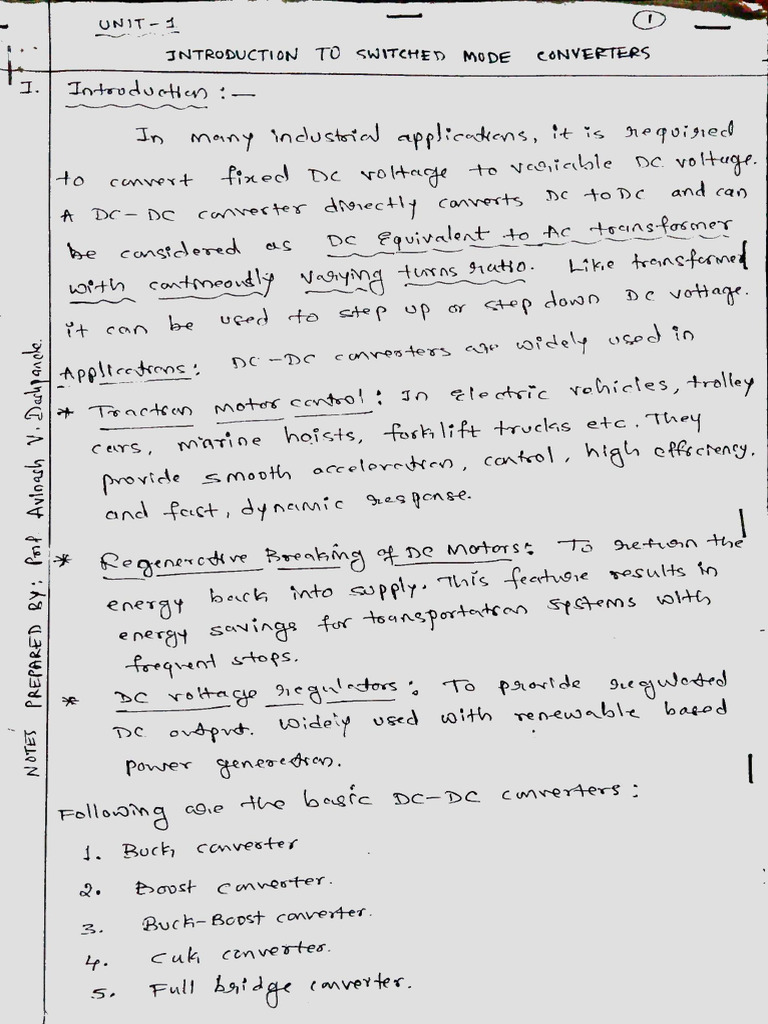 UNIT-1
1
INTRODUCTION TO SWITCHED MODE CONVERTERS
I. Introduction :—
In many industrial applications, it is required
to convert fixed DC voltage to variable DC voltage.
A DC-DC converter directly converts DC to DC and can
be considered as DC Equivalent to AC transformer
with continously varying turns ratio. Like transformer
it can be used to step up or step down DC voltage.
Applications: DC-DC converters are widely used in
* Traction motor control: In Electric vehicles, trolley
cars, marine hoists, forklift trucks etc. They
provide smooth acceleration, control, high efficiency,
and fast, dynamic response.
* Regenerative Breaking of DC Motors: To return the
energy back into supply. This feature results in
energy savings for transportation systems with
frequent stops.
* DC voltage regulators: To provide regulated
DC output. Widely used with renewable based
power generation.
Following are the basic DC-DC converters:
1. Buck converter
2. Boost converter.
3. Buck-Boost converter.
4. Cuk converter.
5. Full bridge converter.
NOTES PREPARED BY: Prof Avinash V. Dashpande.